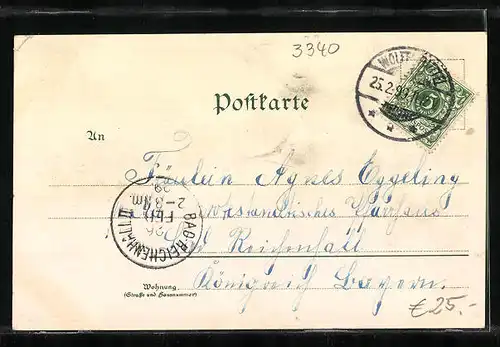 3340
WOLFENBÜTTEL
25.2.99.
5
Postkarte
An
Fräulein Agnes Eggeling
Kurhaus
Bad Reichenhall
Königreich Bayern.
BAD REICHENHALL II
26
FEB
99
2-3 Nm.
Wohnung
(Straße und Hausnummer)
€ 25.-